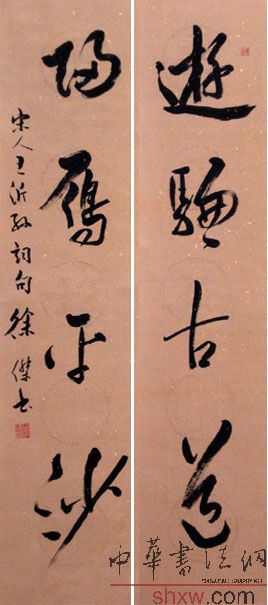 遊驄古道
歸雁平沙
宋人王沂孫詞句 徐傑書
中華書法網
shxw.com